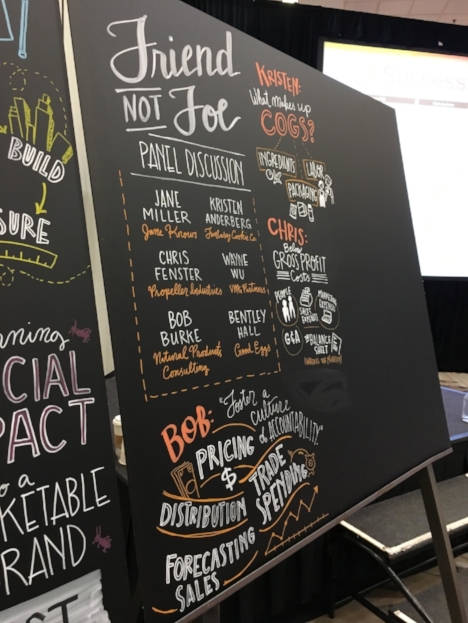 BUILD
SURE
Friend
NOT Foe
PANEL DISCUSSION
JANE
MILLER
Jane Knows
KRISTEN
ANDERBERG
Fantasy Cookie Co.
CHRIS
FENSTER
Propeller Industries
WAYNE
WU
VMG Partners
BOB
BURKE
Natural Products
Consulting
BENTLEY
HALL
Good Eggs
KRISTEN:
What makes up
COGS?
INGREDIENTS
LABOR
PACKAGING
CHRIS:
Below
GROSS PROFIT
Costs
PEOPLE
SALES
EXPENSES
MARKETING
EXPENSES
G&A
BALANCE
SHEET
BOB:
"Foster a
culture
of ACCOUNTABILITY."
PRICING
$
DISTRIBUTION
TRADE
SPENDING
FORECASTING
SALES
CIAL
PACT
KETABLE
RAND
ST
SUCCESS